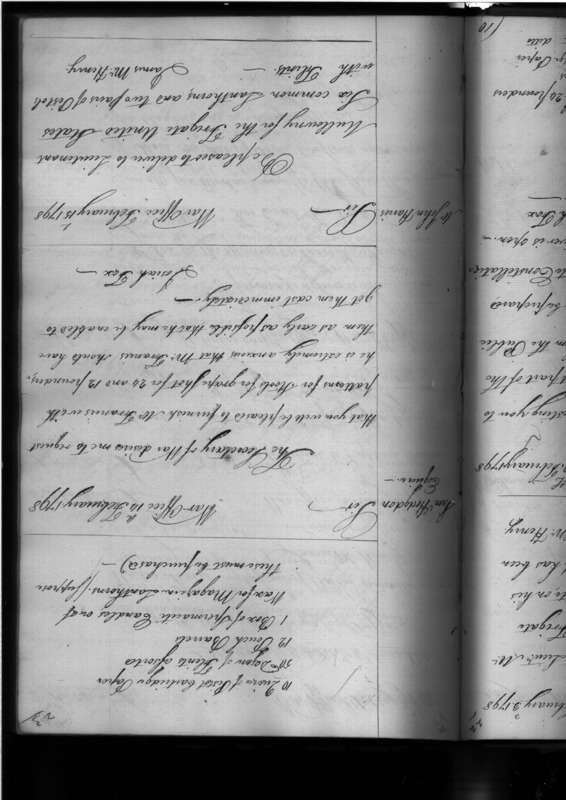 10 Quires of Pistol Cartridge Paper
50 Dozen of Flints assorted
12 Touch Barrels
1 Box of Spermaceti Candles or of
Wax for Magazine Lanthorns (suppose
these must be purchased) —
War Office 15th February 1798
Hodgdon
Esquire. —
Sir —
The Secretary of War desires me to request
that you will be pleased to furnish Mr Francis with
patterns for Stools for grape shot for 24 and 12 pounders,
he is extremely anxious that Mr Francis should have
them as early as possible that he may be enabled to
get them cast immediately —
Josiah Fox —
War Office February 15th 1798
Mr John Harris
Sir —
Be pleased to deliver to Lieutenant
Mullowny for the Frigate United States
Six common Lanthorns, and two pairs of Pistols
with Flints. —
James McHenry.
February 3 1798
Lieut. M.
Frigate
on his
has been
McHenry
February 1798
sting you to
part of the
m the Public
be prepared
Constellation
ver is open. —
Fox —
24 pounders
Paper
ditto
(10